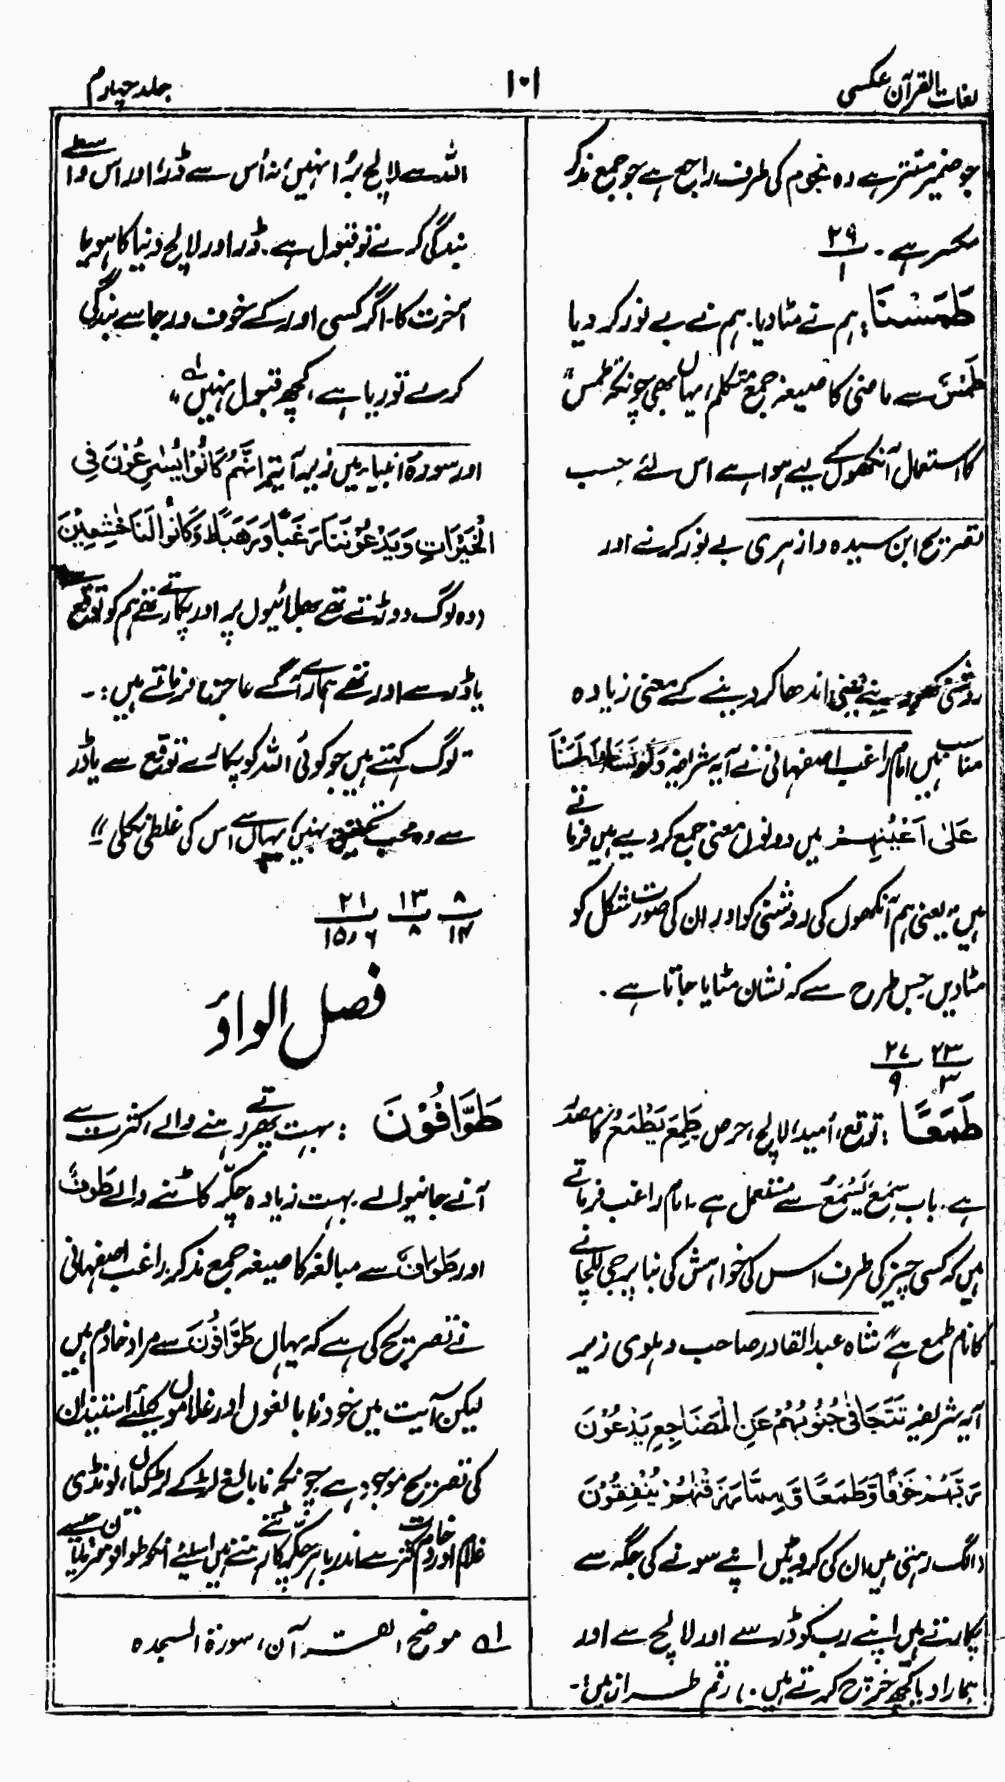 لغات القرآن عکسی
۱۰۱
جلد چہارم
جو ضمیر مستتر ہے وہ نجوم کی طرف راجع ہے جو جمع مذکر
مکسر ہے ۔ ۲۹/۱
طَمَسْنَا: ہم نے مٹا دیا، ہم نے بے نور کر دیا
طَمْسٌ سے ماضی کا صیغہ جمع متکلم، یہاں بھی چونکہ طمس
کا استعمال آنکھوں کے لیے ہوا ہے اس لئے حسب
تصریح ابن سیدہ و ازہری بے نور کرنے اور
روشنی کھو دینے یعنی اندھا کر دینے کے معنی زیادہ
مناسب ہیں امام راغب اصفہانی نے آیہ شریفہ وَلَوْ نَشَاءُ لَطَمَسْنَا
عَلٰی اَعْیُنِہِمْ میں دونوں معنی جمع کر دیے ہیں فرماتے
ہیں "یعنی ہم آنکھوں کی روشنی کو اور ان کی صورت شکل کو
مٹا دیں جس طرح سے کہ نشان مٹایا جاتا ہے ۔
۲۳/۳ ۲۷/۹
طَمَعًا: توقع، اُمید، لالچ، حرص طَمِعَ یَطْمَعُ کا مصدر
ہے۔ باب سَمِعَ یَسْمَعُ سے مستعمل ہے۔ امام راغب فرماتے
ہیں کہ کسی چیز کی طرف اس کی خواہش کی بنا پر جی للچانے
کا نام طمع ہے شاہ عبدالقادر صاحب دہلوی زیر
آیہ شریفہ تَتَجَافٰی جُنُوْبُہُمْ عَنِ الْمَضَاجِعِ یَدْعُوْنَ
رَبَّہُمْ خَوْفًا وَّطَمَعًا وَّمِمَّا رَزَقْنٰہُمْ یُنْفِقُوْنَ
(الگ رہتی ہیں ان کی کروٹیں اپنے سونے کی جگہ سے
پکارتے ہیں اپنے رب کو ڈر سے اور لالچ سے اور
ہمارا دیا کچھ خرچ کرتے ہیں۔) رقم طراز ہیں:۔
اللہ سے لالچ بُرا نہیں، نہ اُس سے ڈر، اور اس واسطے
بندگی کرے تو قبول ہے۔ ڈر اور لالچ دنیا کا ہو یا
آخرت کا۔ اگر کسی اور کے خوف و رجا سے بندگی
کرے تو ریا ہے، کچھ قبول نہیں"۱؎
اور سورۃ انبیاء میں زیر آیت اِنَّہُمْ کَانُوْا یُسٰرِعُوْنَ فِی
الْخَیْرَاتِ وَیَدْعُوْنَنَا رَغَبًا وَّرَہَبًا وَکَانُوْا لَنَا خٰشِعِیْنَ
(وہ لوگ دوڑتے تھے بھلائیوں پر اور پکارتے تھے ہم کو توقع
یا ڈر سے اور تھے ہمارے آگے عاجز) فرماتے ہیں:۔
"لوگ کہتے ہیں جو کوئی اللہ کو پکارے توقع سے یا ڈر
سے وہ محب تحقیق نہیں، یہاں سے اس کی غلطی نکلی"
۸/۱۴ ۱۳/۸ ۲۱/۱۵،۶
فصل الواؤ
طَوَّافُوْنَ: بہت پھرتے رہنے والے، کثرت سے
آنے جانیوالے۔ بہت زیادہ چکّر کاٹنے والے طَوْفٌ
اور طَوَافٌ سے مبالغہ کا صیغہ جمع مذکر، راغب اصفہانی
نے تصریح کی ہے کہ یہاں طَوَّافُوْنَ سے مراد خادم ہیں
لیکن آیت میں خود نا بالغوں اور غلاموں کیلئے استیذان
کی تصریح موجود ہے چونکہ نابالغ لڑکے لڑکیاں، لونڈی
غلام اور خادم کثرت سے اندر باہر چکّر کاٹتے رہتے ہیں اسلئے انکو طوافون سے
۱؎ موضح القرآن، سورۃ السجدہ